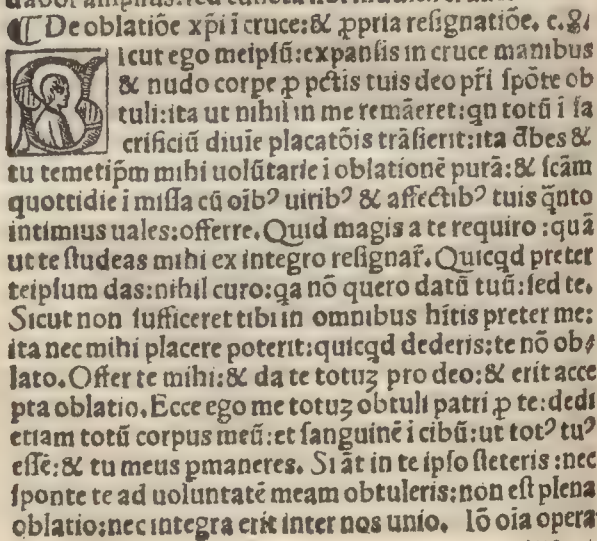 ¶ De oblatiõe xp̃i i cruce: & ꝓpria resignatiõe. c. 8.
Sicut ego meipsũ: expansis in cruce manibus
& nudo corpe ꝓ pctis tuis deo pr̃i spõte ob
tuli: ita ut nihil in me remãeret: qn totũ i sa
crificiũ diuie placatõis trãsierit: ita d̃bes &
tu temetip̃m mihi uolũtarie i oblationẽ purã: & scãm
quottidie i missa cũ oibꝰ uiribꝰ & affectibꝰ tuis q̃nto
intimius uales: offerre. Quid magis a te requiro: quã
ut te studeas mihi ex integro resignar̃. Quicqd preter
teipsum das: nihil curo: qa nõ quero datũ tuũ: sed te.
Sicut non sufficeret tibi in omnibus hĩtis preter me:
ita nec mihi placere poterit: quicqd dederis: te nõ ob⸗
lato. Offer te mihi: & da te totuꝫ pro deo: & erit acce
pta oblatio. Ecce ego me totuꝫ obtuli patri ꝓ te: dedi
etiam totũ corpus meũ: et sanguinẽ i cibũ: ut totꝰ tuꝰ
essẽ: & tu meus pmaneres. Si ãt in te ipso steteris: nec
sponte te ad uoluntatẽ meam obtuleris: non est plena
oblatio: nec integra erit inter nos unio. Iõ oĩa opera